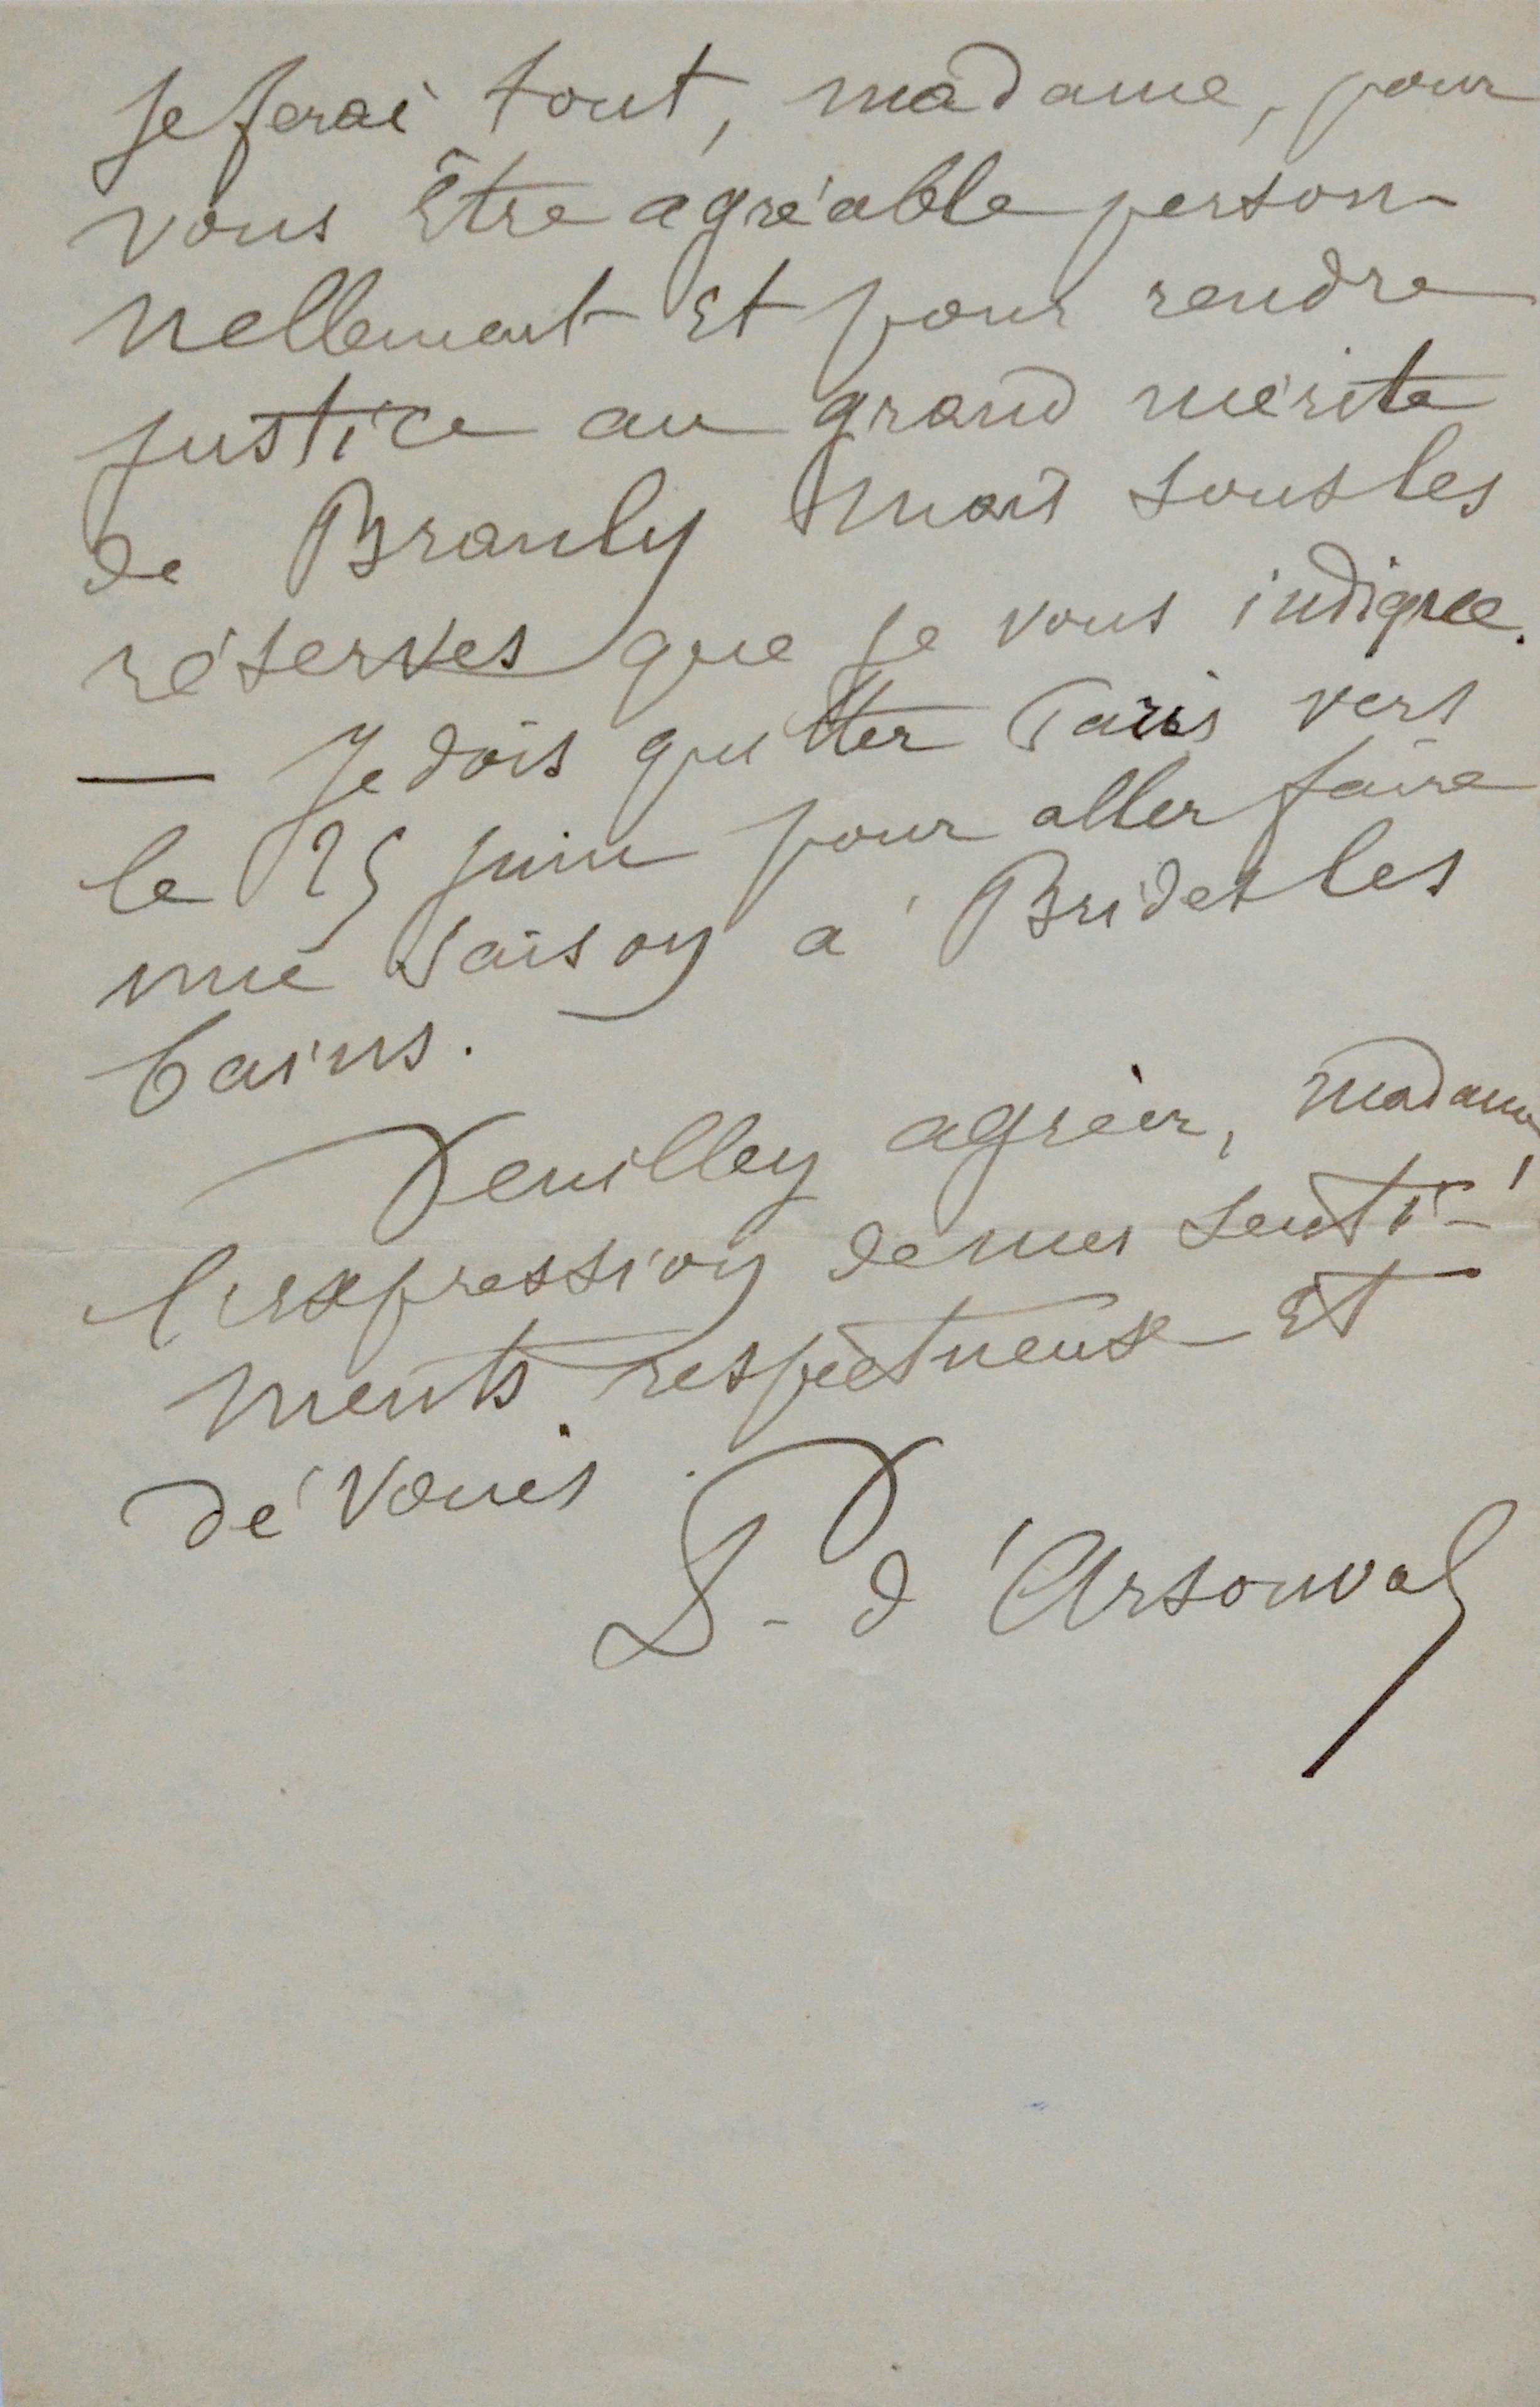 Je ferai tout, madame, pour
vous être agréable person-
nellement et pour rendre
justice au grand mérite
de Branly mais sous les
réserves que je vous indique.
— Je dois quitter Paris vers
le 25 juin pour aller faire
une saison à Brides les
bains.
Veuillez agréer, madame,
l'expression de mes senti-
ments respectueux et
dévoués.
Dr d'Arsonval